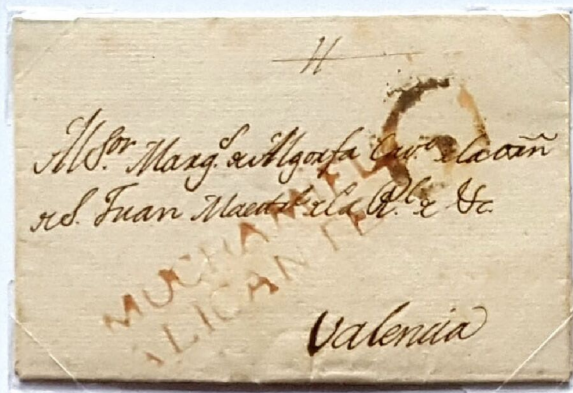 Al S.or Marq.s de Algorfa Cav.o de la orñ
de S. Juan Maestr.e de la R.l de &c.
MUCHAMIEL
ALICANTE
Valencia